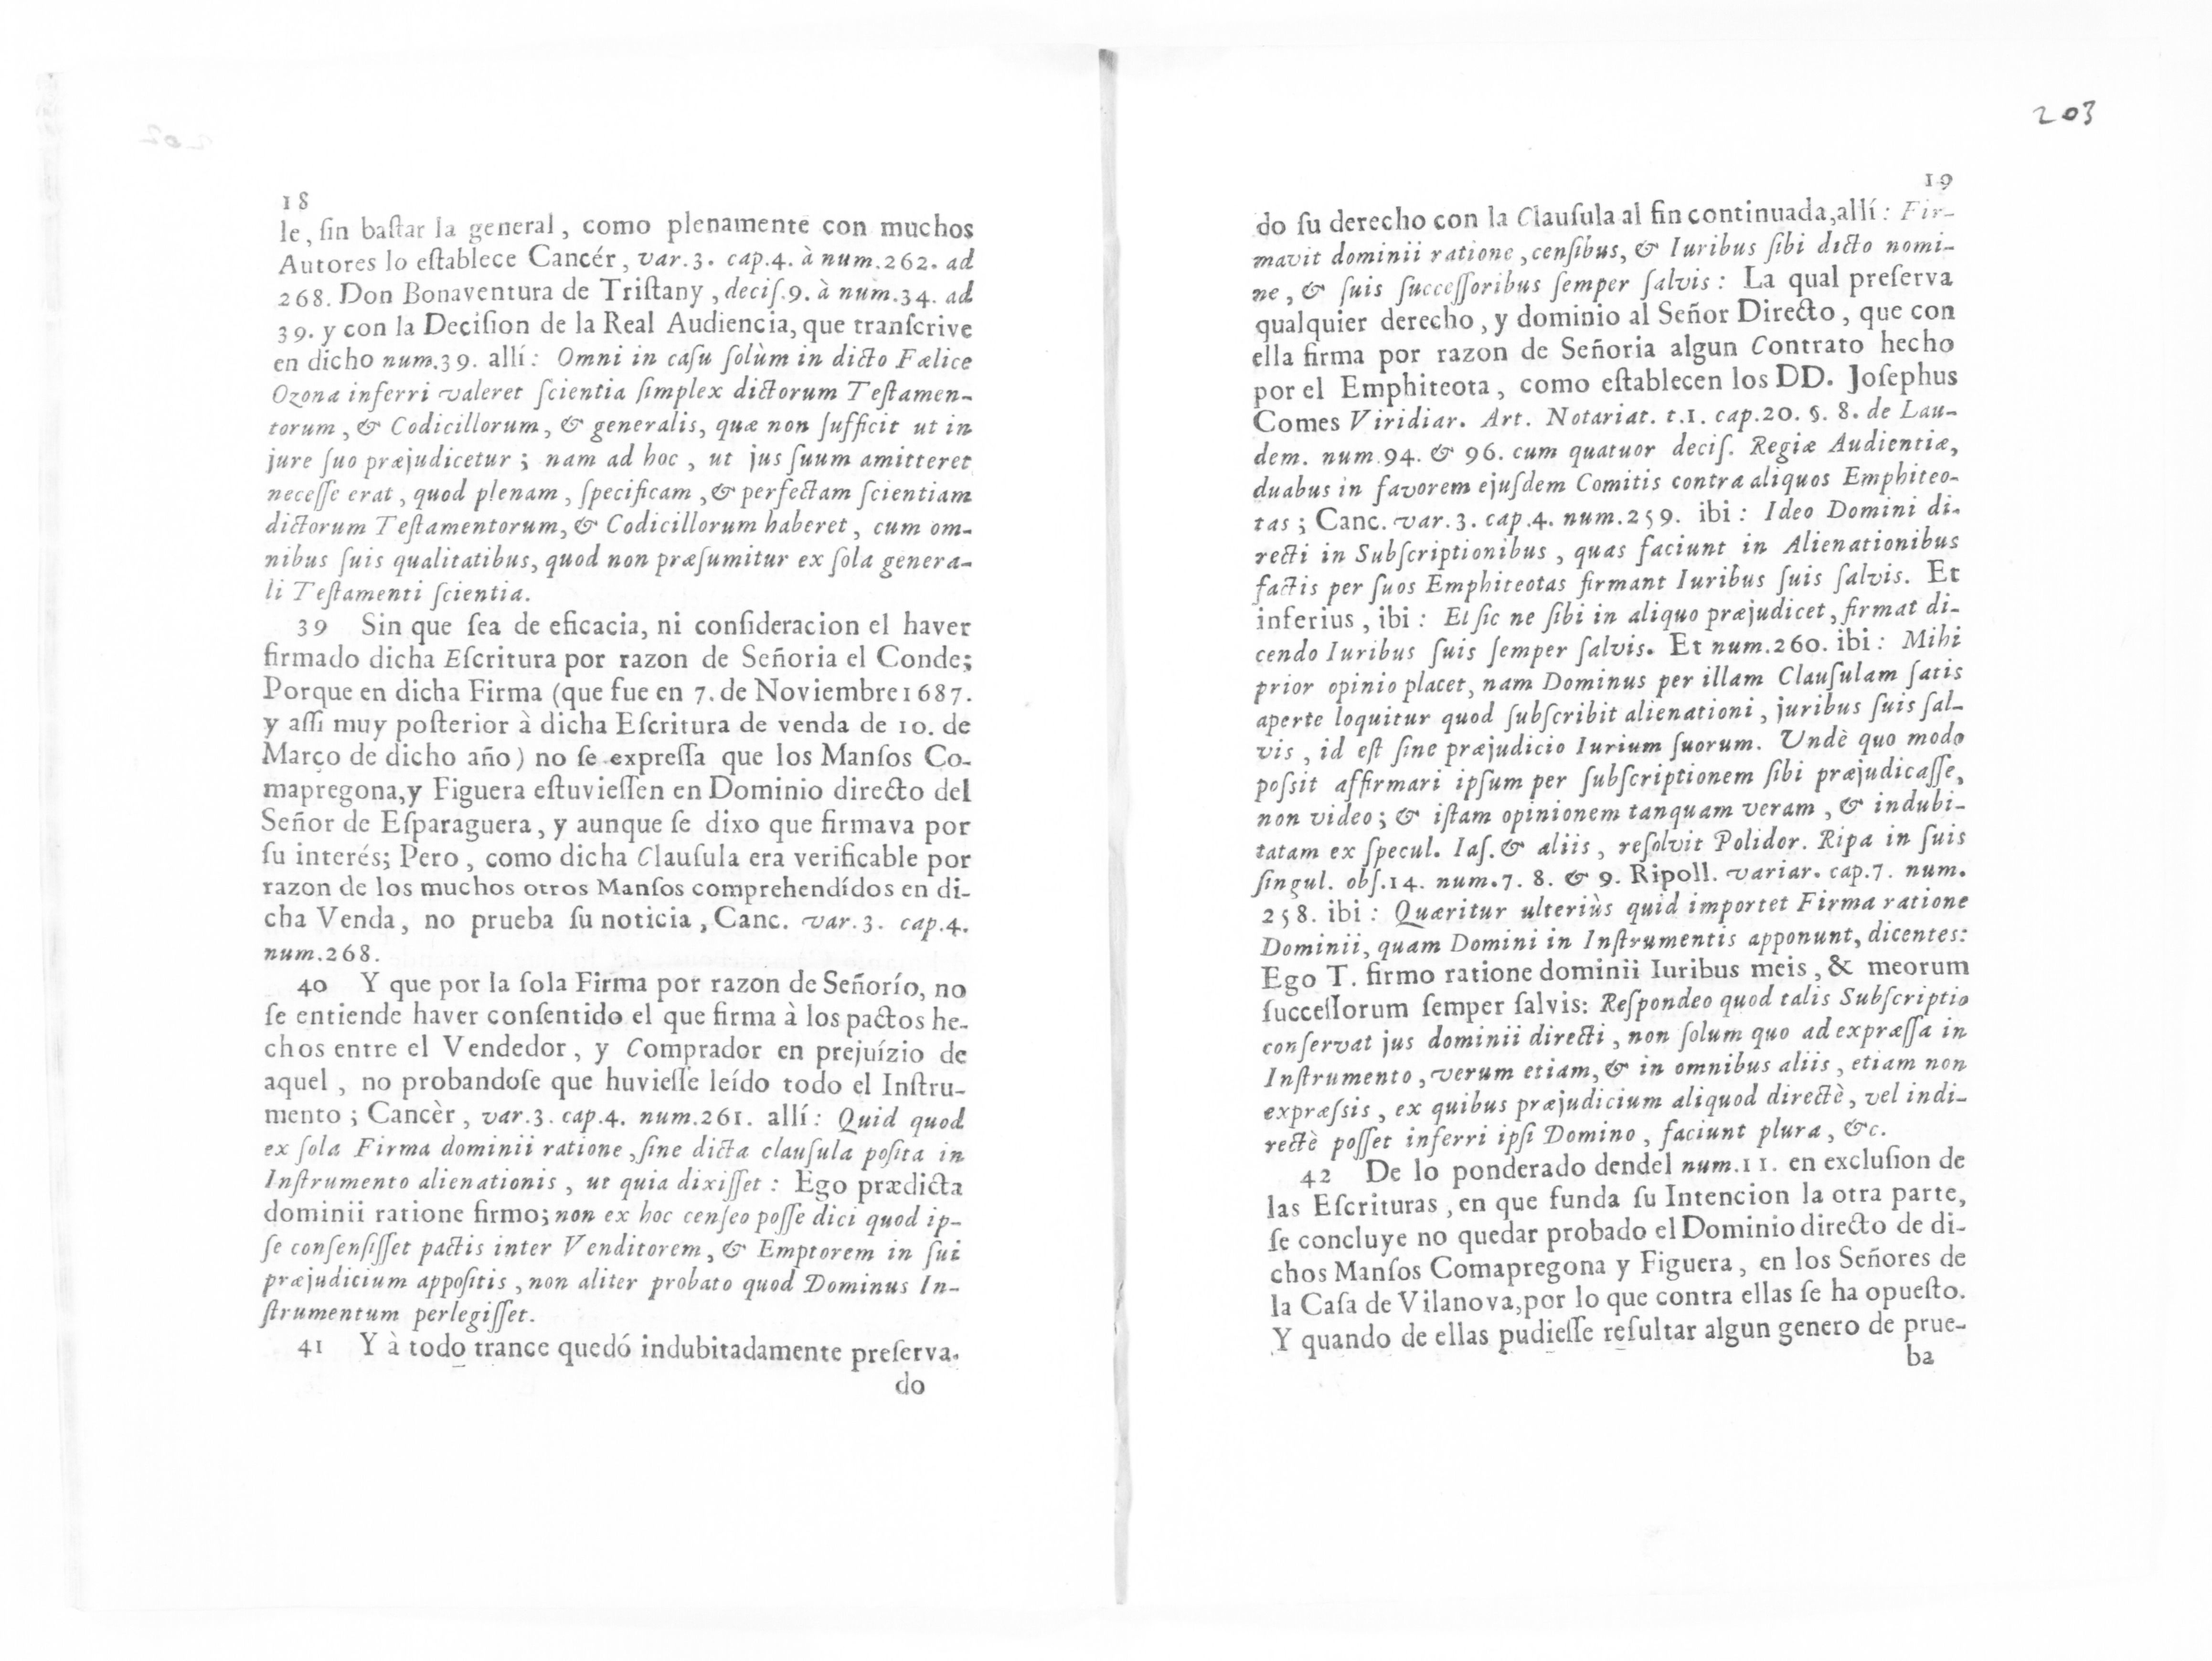 18
le, ſin baſtar la general, como plenamente con muchos
Autores lo eſtablece Cancér, var.3. cap.4. à num.262. ad
268. Don Bonaventura de Triſtany, deciſ.9. à num.34. ad
39. y con la Deciſion de la Real Audiencia, que tranſcrive
en dicho num.39. allí: Omni in caſu ſolùm in dicto Fælice
Ozona inferri valeret ſcientia ſimplex dictorum Teſtamen-
torum, & Codicillorum, & generalis, quæ non ſufficit ut in
jure ſuo præjudicetur; nam ad hoc, ut jus ſuum amitteret
neceſſe erat, quod plenam, ſpecificam, & perfectam ſcientiam
dictorum Teſtamentorum, & Codicillorum haberet, cum om-
nibus ſuis qualitatibus, quod non præſumitur ex ſola genera-
li Teſtamenti ſcientia.
39 Sin que ſea de eficacia, ni conſideracion el haver
firmado dicha Eſcritura por razon de Señoria el Conde;
Porque en dicha Firma (que fue en 7. de Noviembre 1687.
y aſſi muy poſterior à dicha Eſcritura de venda de 10. de
Março de dicho año) no ſe expreſſa que los Manſos Co-
mapregona, y Figuera eſtuvieſſen en Dominio directo del
Señor de Eſparaguera, y aunque ſe dixo que firmava por
ſu interés; Pero, como dicha Clauſula era verificable por
razon de los muchos otros Manſos comprehendídos en di-
cha Venda, no prueba ſu noticia, Canc. var.3. cap.4.
num.268.
40 Y que por la ſola Firma por razon de Señorío, no
ſe entiende haver conſentido el que firma à los pactos he-
chos entre el Vendedor, y Comprador en prejuízio de
aquel, no probandoſe que huvieſſe leído todo el Inſtru-
mento; Cancèr, var.3. cap.4. num.261. allí: Quid quod
ex ſola Firma dominii ratione, ſine dicta clauſula poſita in
Inſtrumento alienationis, ut quia dixiſſet: Ego prædicta
dominii ratione firmo; non ex hoc cenſeo poſſe dici quod ip-
ſe conſenſiſſet pactis inter Venditorem, & Emptorem in ſui
præjudicium appoſitis, non aliter probato quod Dominus In-
ſtrumentum perlegiſſet.
41 Y à todo trance quedó indubitadamente preſerva-
do
203
19
do ſu derecho con la Clauſula al fin continuada, allí: Fir-
mavit dominii ratione, cenſibus, & Iuribus ſibi dicto nomi-
ne, & ſuis ſucceſſoribus ſemper ſalvis: La qual preſerva
qualquier derecho, y dominio al Señor Directo, que con
ella firma por razon de Señoria algun Contrato hecho
por el Emphiteota, como eſtablecen los DD. Joſephus
Comes Viridiar. Art. Notariat. t.1. cap.20. §. 8. de Lau-
dem. num.94. & 96. cum quatuor deciſ. Regiæ Audientiæ,
duabus in favorem ejuſdem Comitis contra aliquos Emphiteo-
tas; Canc. var.3. cap.4. num.259. ibi: Ideo Domini di-
recti in Subſcriptionibus, quas faciunt in Alienationibus
factis per ſuos Emphiteotas firmant Iuribus ſuis ſalvis. Et
inferius, ibi: Et ſic ne ſibi in aliquo præjudicet, firmat di-
cendo Iuribus ſuis ſemper ſalvis. Et num.260. ibi: Mihi
prior opinio placet, nam Dominus per illam Clauſulam ſatis
aperte loquitur quod ſubſcribit alienationi, juribus ſuis ſal-
vis, id eſt ſine præjudicio Iurium ſuorum. Undè quo modo
poſsit affirmari ipſum per ſubſcriptionem ſibi præjudicaſſe,
non video; & iſtam opinionem tanquam veram, & indubi-
tatam ex ſpecul. Iaſ. & aliis, reſolvit Polidor. Ripa in ſuis
ſingul. obſ.14. num.7. 8. & 9. Ripoll. variar. cap.7. num.
258. ibi: Quæritur ulteriùs quid importet Firma ratione
Dominii, quam Domini in Inſtrumentis apponunt, dicentes:
Ego T. firmo ratione dominii Iuribus meis, & meorum
ſucceſſorum ſemper ſalvis: Reſpondeo quod talis Subſcriptio
conſervat jus dominii directi, non ſolum quo ad expræſſa in
Inſtrumento, verum etiam, & in omnibus aliis, etiam non
expræſsis, ex quibus præjudicium aliquod directè, vel indi-
rectè poſſet inferri ipſi Domino, faciunt plura, &c.
42 De lo ponderado dendel num.11. en excluſion de
las Eſcrituras, en que funda ſu Intencion la otra parte,
ſe concluye no quedar probado el Dominio directo de di-
chos Manſos Comapregona y Figuera, en los Señores de
la Caſa de Vilanova, por lo que contra ellas ſe ha opueſto.
Y quando de ellas pudieſſe reſultar algun genero de prue-
ba